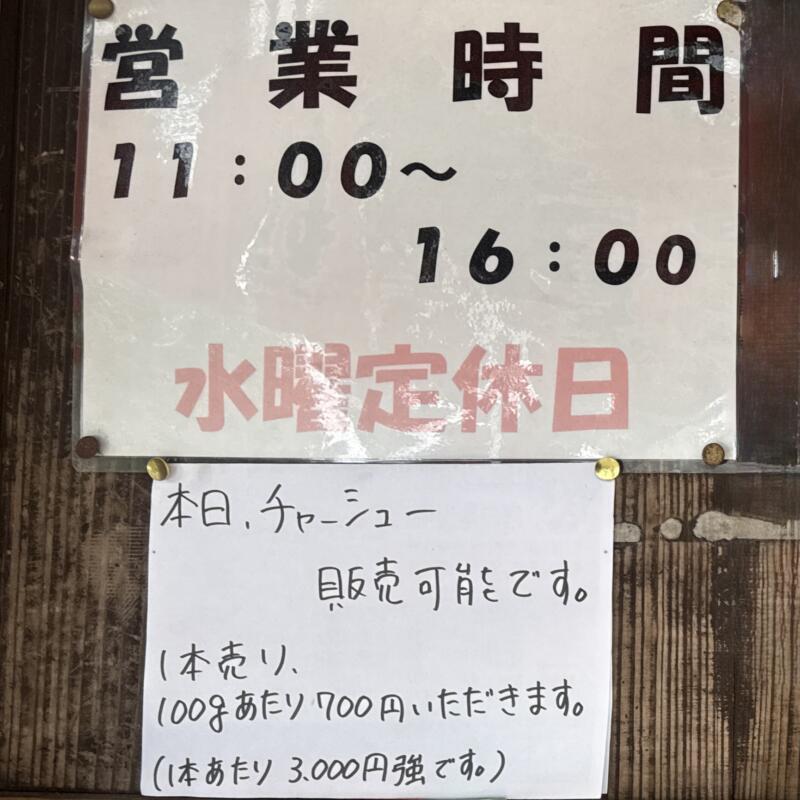 営業時間
11:00～
16:00
水曜定休日
本日、チャーシュー
販売可能です。
1本売り、
100gあたり700円いただきます。
(1本あたり 3.000円強です。)